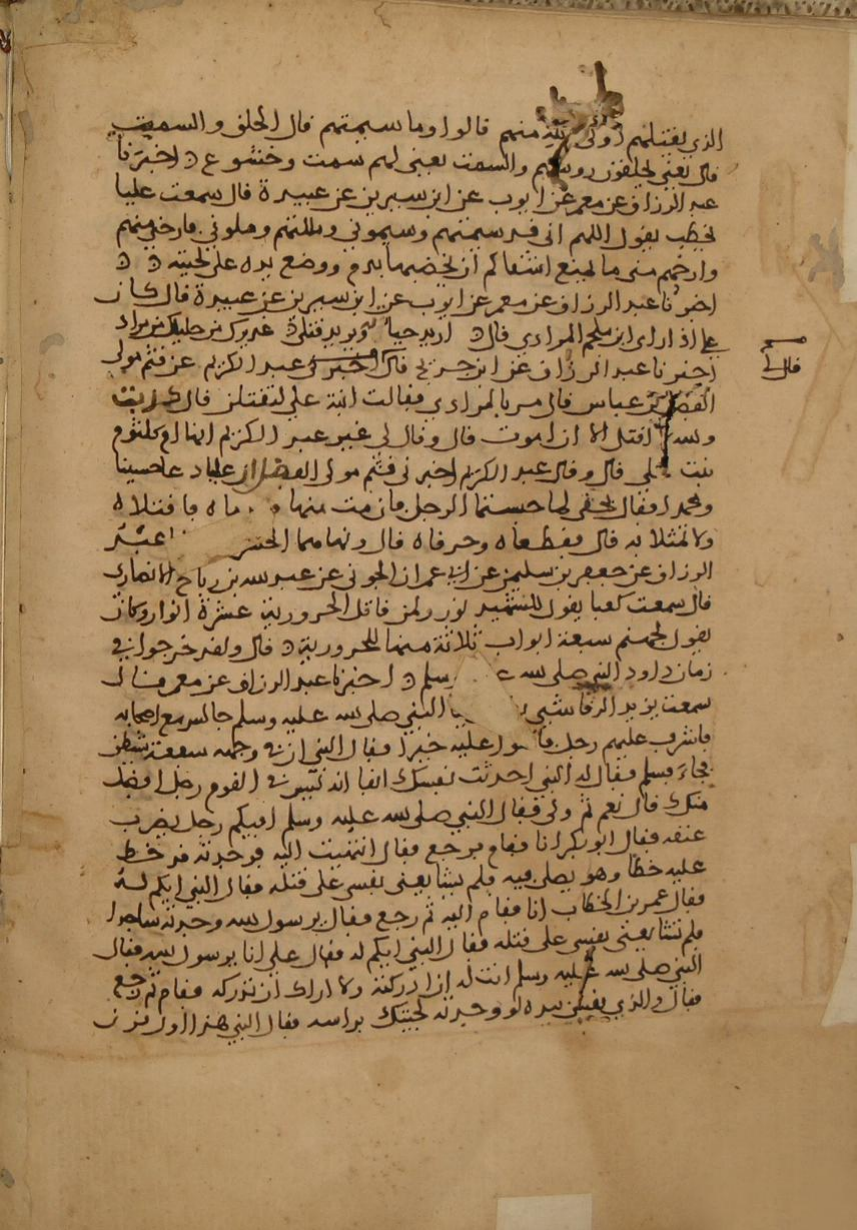 الذي يقتلهم اولى بالله منهم قالوا وما سيمتهم قال الحلق والسميت
قال يعني يحلقون روسهم والسمت يعني لهم سمت وخشوع اخبرنا
عبد الرزاق عن معمر عن ايوب عن ابن سيرين عن عبيدة قال سمعت عليا
يخطب يقول اللهم اني قد سيمتهم وسيموني ومللتهم وملوني فارحني منهم
وارحهم مني ما يمنع اشقاكم ان يخضبها بدم ووضع يده على لحيته
اخبرنا عبد الرزاق عن معمر عن ايوب عن ابن سيرين عن عبيدة قال كان
علي اذا راى ابن ملجم المرادي قال اريد حياته ويريد قتلي عذيرك من خليلك من مراد
اخبرنا عبد الرزاق عن ابن جريج قال اخبرني عبد الكريم عن قثم مولى
قال لي
الفضل بن عباس قال مر بالمرادي فقالت ابنة علي لتقتلن قال كذبت
والله لا اقتل الا ان اموت قال وقال لي غير عبد الكريم انها ام كلثوم
بنت علي قال وقال عبد الكريم اخبرني قثم مولى الفضل ان عليا دعا حسينا
ومحمدا فقال بحقي لما حبستما الرجل فان مت منها فاقتلاه
ولا تمثلا به قال فقطعاه وحرقاه قال ونهاهما الحسن عبد
الرزاق عن جعفر بن سليمن عن ابي عمران الجوني عن عبد الله بن رباح الانصاري
قال سمعت كعبا يقول للشهيد نور ولمن قاتل الحرورية عشرة انوار وكان
يقول لجهنم سبعة ابواب ثلاثة منها للحرورية قال ولقد خرجوا في
زمان داود النبي صلى الله وسلم اخبرنا عبد الرزاق عن معمر قال
سمعت يزيد الرقاشي النبي صلى الله عليه وسلم جالس مع اصحابه
فاشرف عليهم رجل عليه خيرا فقال النبي ان في وجهه سفعة شيطن
فجاء فسلم فقال له النبي احدثت نفسك انفا انه ليس في القوم رجل افضل
منك قال نعم ثم ولى فقال النبي صلى الله عليه وسلم افيكم رجل يضرب
عنقه فقال ابو بكر انا فقام فرجع فقال انتهيت اليه فوجدته قد خط
عليه خطا وهو يصلي فيه فلم تشايعني نفسي على قتله فقال النبي ايكم له
فقال عمر بن الخطاب انا فقام اليه ثم رجع فقال يرسول الله وجدته ساجدا
فلم تشايعني نفسي على قتله فقال النبي ايكم له فقال علي انا يرسول الله فقال
النبي صلى الله عليه وسلم انت له ان ادركته ولا اراك ان تدركه فقام ثم رجع
فقال والذي نفسي بيده لو وجدته لجيتك براسه فقال النبي هذا اول قرن